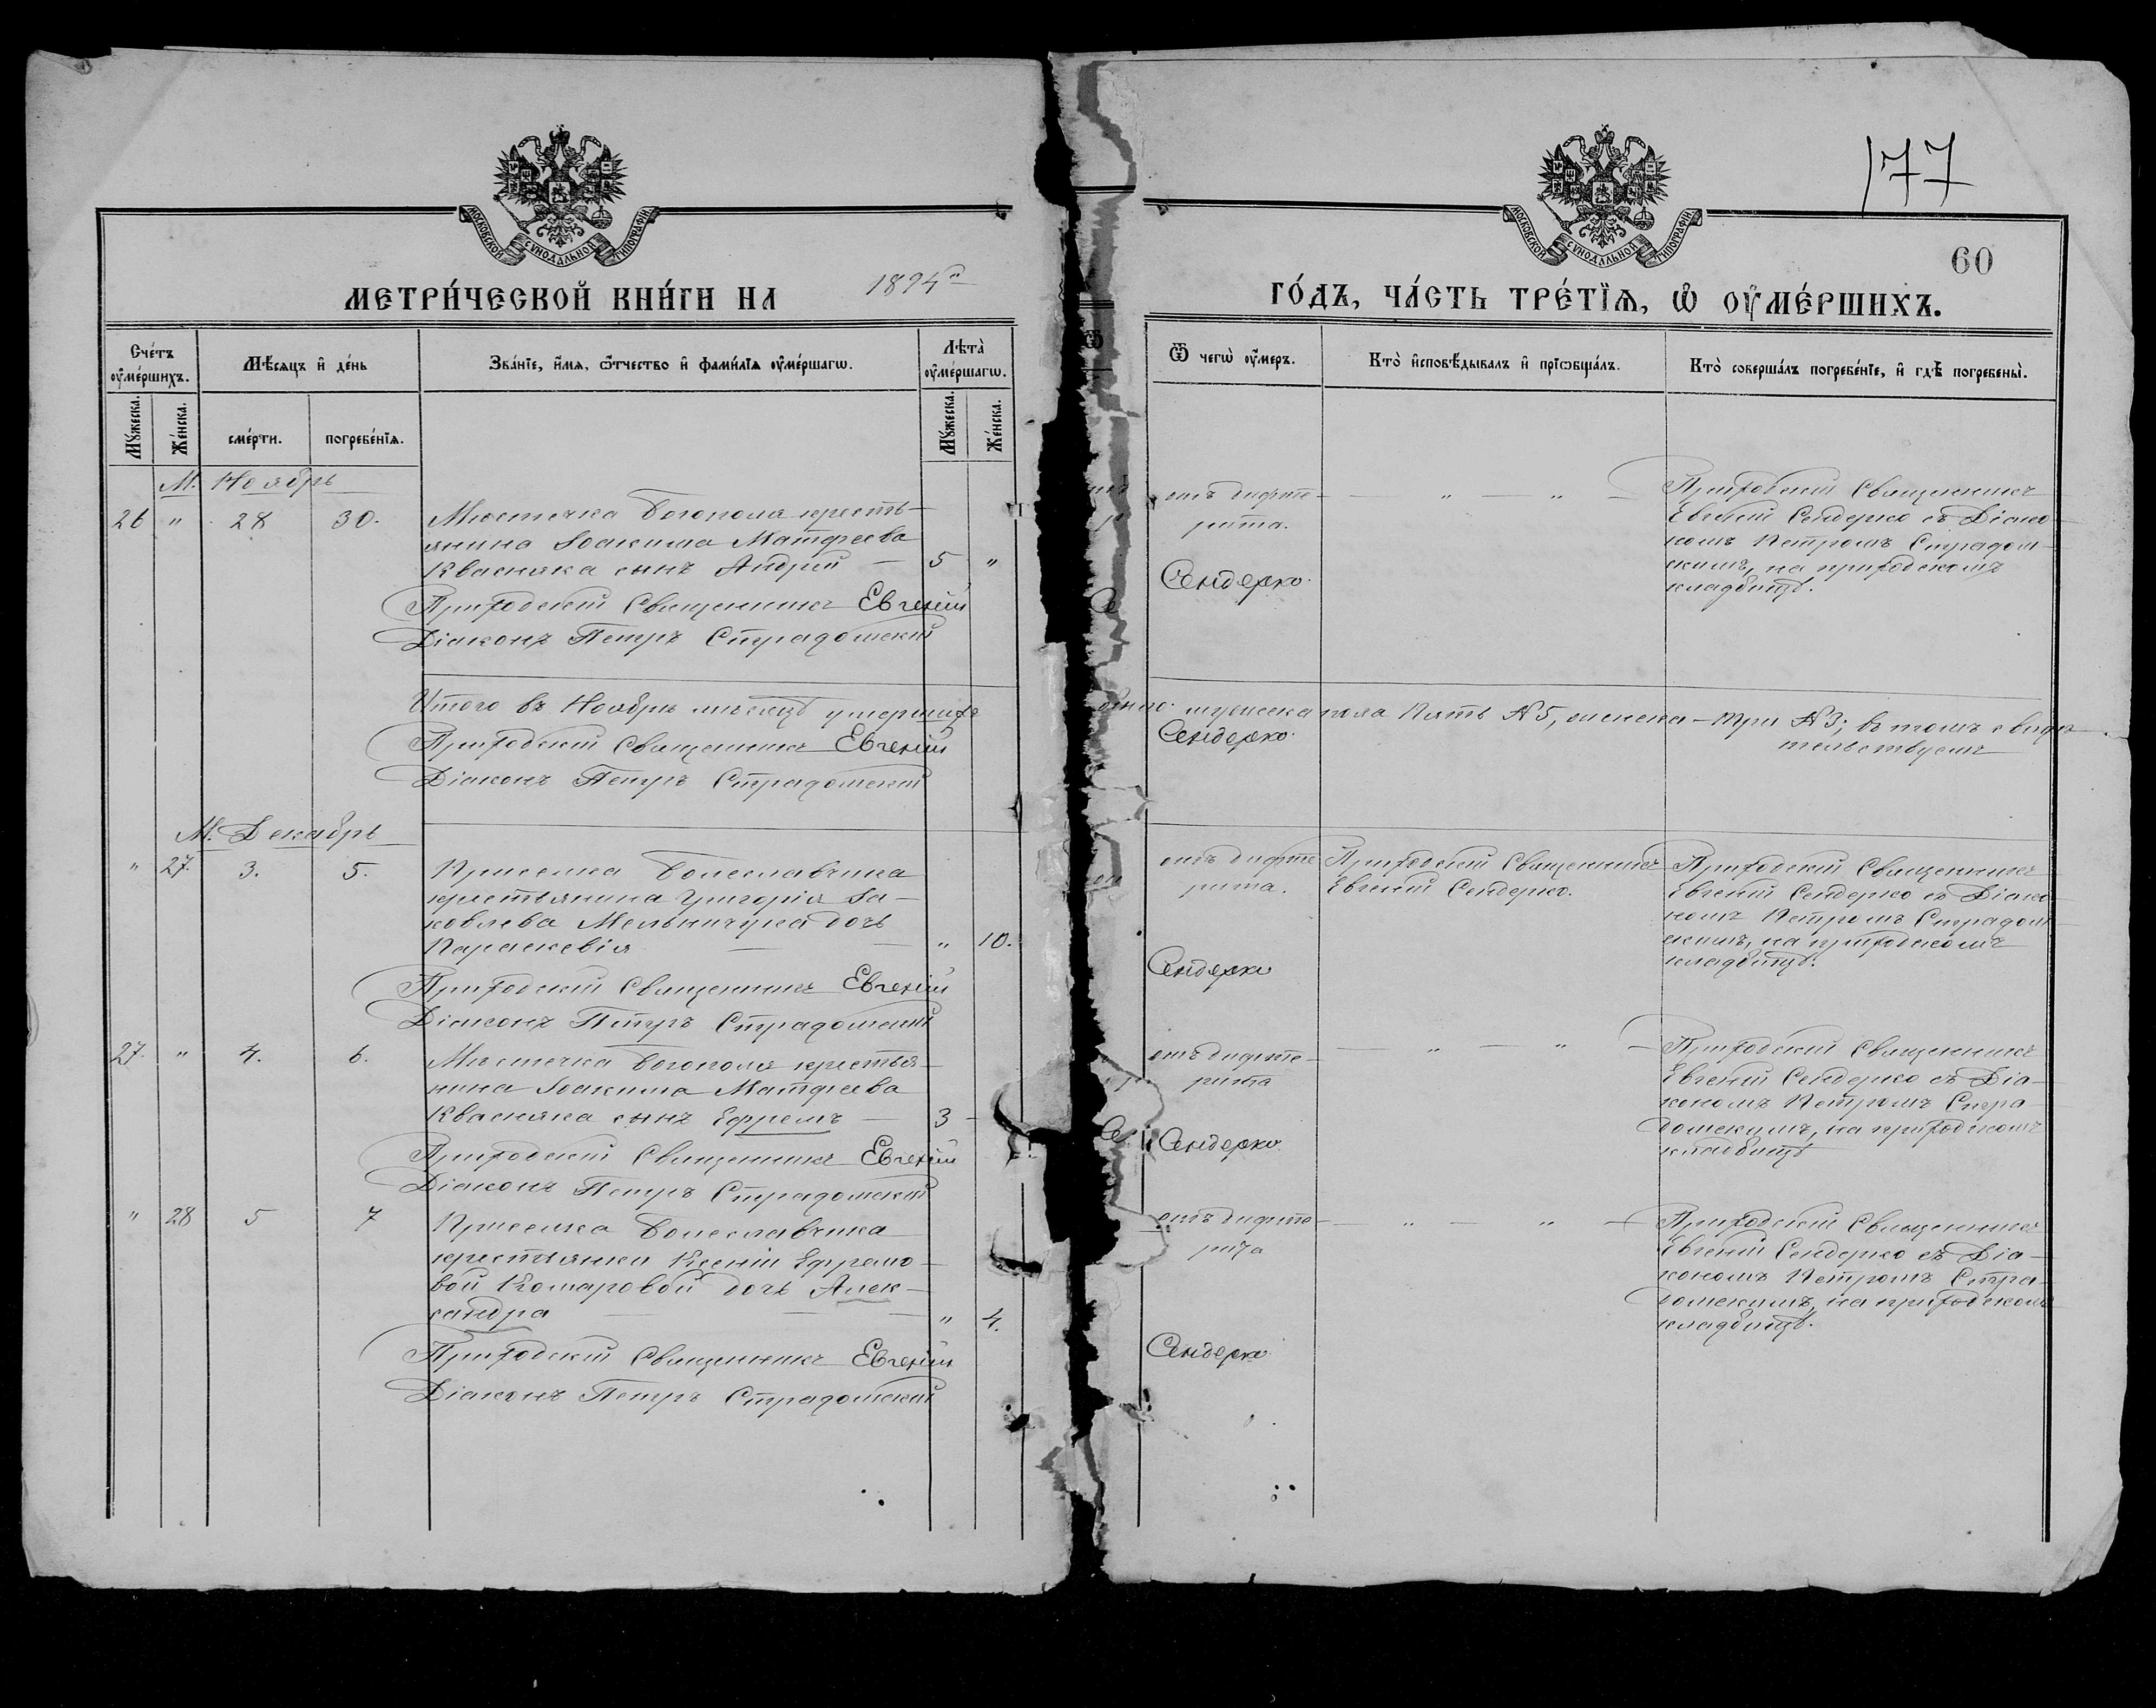 МОСКОВСКОЙ СѴНОДАЛЬНОЙ ТИПОГРАФІИ
МЕТРИ́ЧЕСКОЙ КНИ́ГИ НА 1894й
Сче́тъ оу҆ме́ршихъ.
Мѣ́сяцъ и҆ де́нь
Зва́нїе, и҆́мя, ѻ҆́тчество и҆ фами́лїя оу҆ме́ршагѡ.
Лѣта̀ оу҆ме́ршагѡ.
Мꙋ́жеска.
Же́нска.
сме́рти.
погребе́нїѧ.
Мꙋ́жеска.
Же́нска.
М. Ноябрь
26 " 28 30. Мѣстечка Богополя кресть-
янина Іоакима Матфеева
Квасняка сынъ Андрей — 5 "
Приходскій Священникъ Евгеній
Діаконъ Петръ Страдомскій
Итого въ Ноябрѣ мѣсяцѣ умершихъ
Приходскій Священникъ Евгеній
Діаконъ Петръ Страдомскій
М. Декабрь
" 27. 3. 5. Приселка Болеславчика
крестьянина Григорія Іа-
ковлева Мельничука дочь
Параскевія — — " 10.
Приходскій Священникъ Евгеній
Діаконъ Петръ Страдомскій
27. " 4. 6. Мѣстечка Богополя крестья-
нина Іоакима Матфеева
Квасняка сынъ Ефремъ — 3 -
Приходскій Священникъ Евгеній
Діаконъ Петръ Страдомскій
" 28 5 7 Приселка Болеславчика
крестьянки Ксеніи Ефремо-
вой Комаровой дочь Алек-
сандра — — — " 4.
Приходскій Священникъ Евгеній
Діаконъ Петръ Страдомскій
177
МОСКОВСКОЙ СѴНОДАЛЬНОЙ ТИПОГРАФІИ
60
ГО́ДЪ, ЧА́СТЬ ТРЕ́ТЇѦ, Ѡ҆ ОУ҆МЕ́РШИХЪ.
Ѿ чегѡ̀ оу҆́меръ.
Кто̀ и҆сповѣ́дывалъ и҆ прїѡбща́лъ.
Кто̀ соверша́лъ погребе́нїе, и҆ гдѣ̀ погребены̀.
отъ дифте-
рита.
— " — " —
Приходскій Священникъ
Евгеній Сендерко съ Діако-
номъ Петромъ Страдом-
скимъ, на приходскомъ
кладбищѣ.
Сендерко.
мужеска пола пять № 5, женска — три № 3; въ томъ свидѣ-
тельствуемъ
Сендерко.
отъ дифте
рита.
Приходскій Священникъ
Евгеній Сендерко.
Приходскій Священникъ
Евгеній Сендерко съ Діако-
номъ Петромъ Страдом-
скимъ, на приходскомъ
кладбищѣ.
Сендерко
отъ дифте-
рита
— " — " —
Приходскій Священникъ
Евгеній Сендерко съ Діа-
кономъ Петромъ Стра-
домскимъ, на приходскомъ
кладбищѣ
Сендерко.
отъ дифте-
рита
— " — " —
Приходскій Священникъ
Евгеній Сендерко съ Діа-
кономъ Петромъ Стра-
домскимъ, на приходскомъ
кладбищѣ.
Сендерко.